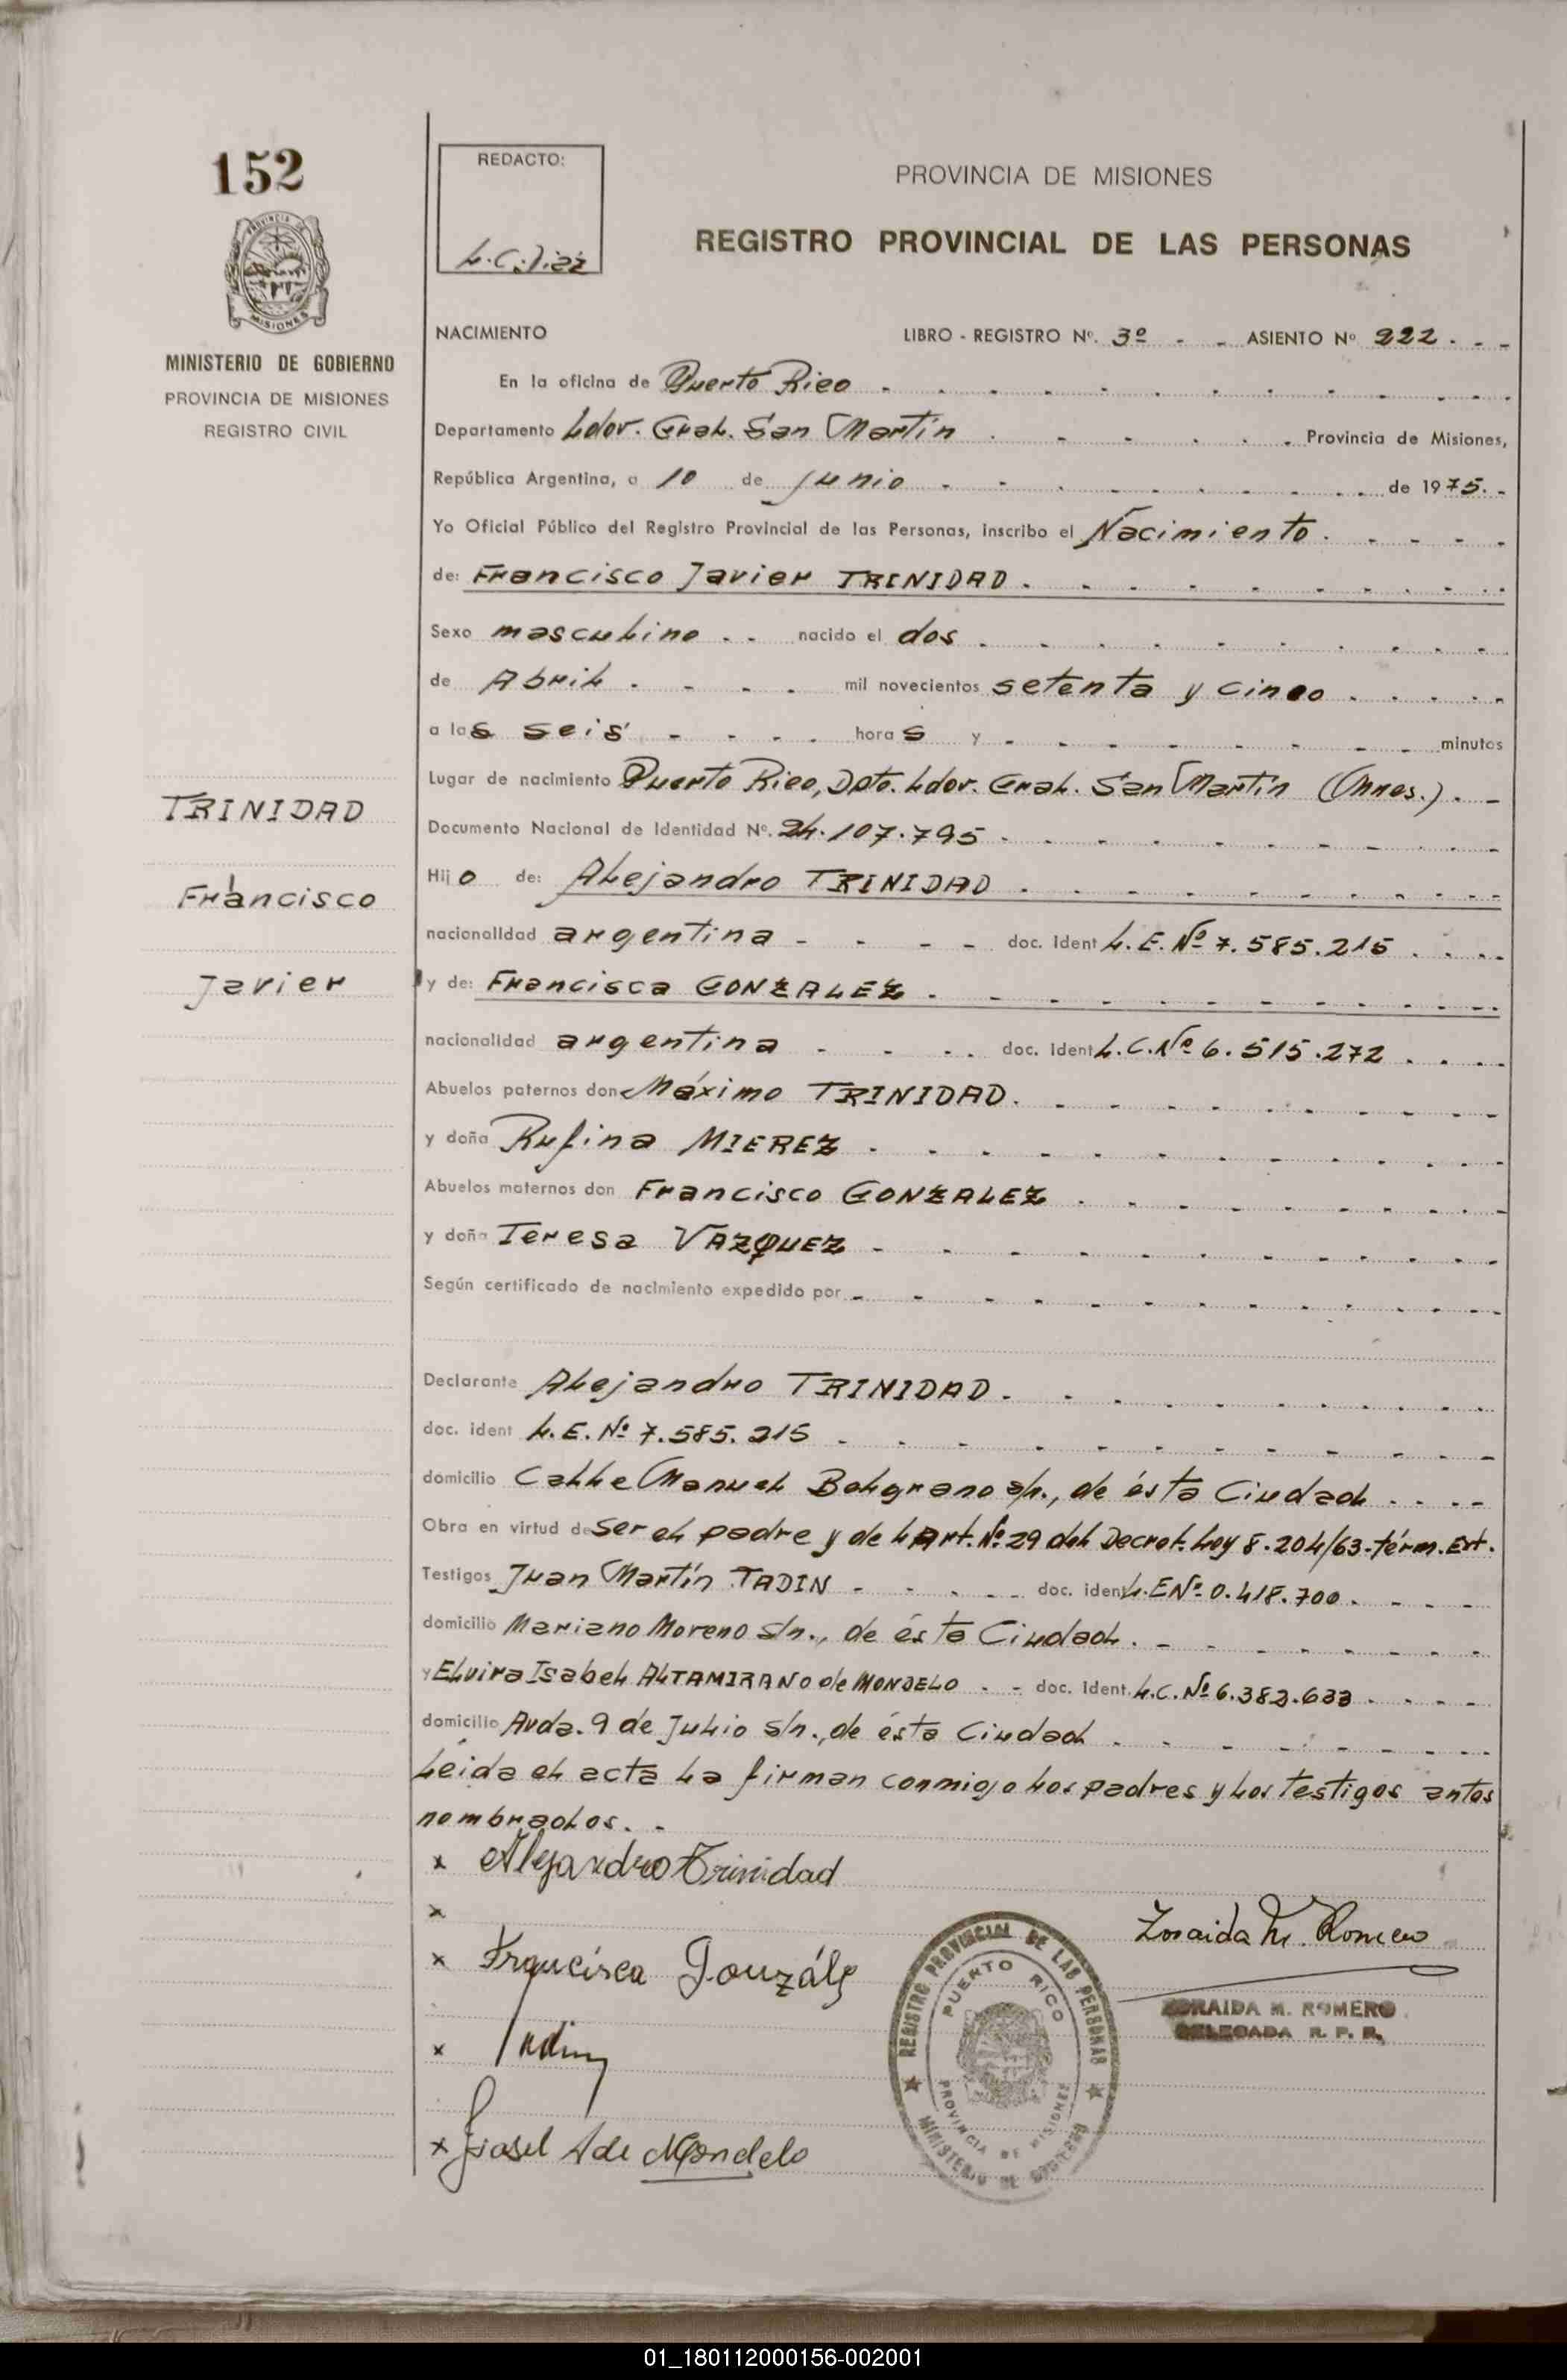 152
REDACTO:
L.C.Díaz
PROVINCIA DE MISIONES
REGISTRO PROVINCIAL DE LAS PERSONAS
PROVINCIA DE
MISIONES
MINISTERIO DE GOBIERNO
PROVINCIA DE MISIONES
REGISTRO CIVIL
NACIMIENTO LIBRO - REGISTRO Nº. 3º - - ASIENTO Nº 222. - -
En la oficina de Puerto Rico
Departamento Ldor. Gral. San Martín Provincia de Misiones,
República Argentina, a 10 de junio de 1975. -
Yo Oficial Público del Registro Provincial de las Personas, inscribo el Nacimiento.
de: Francisco Javier TRINIDAD.
Sexo masculino nacido el dos
de Abril mil novecientos setenta y cinco
a las seis horas y minutos
Lugar de nacimiento Puerto Rico, Dpto. Ldor. Gral. San Martín (Mnes.). -
Documento Nacional de Identidad Nº. 24.107.795
Hijo de: Alejandro TRINIDAD
nacionalidad argentina doc. Ident L.E. Nº 7.585.215
y de: Francisca GONZALEZ
nacionalidad argentina doc. Ident L.C. Nº 6.515.272
Abuelos paternos don Máximo TRINIDAD.
y doña Rufina MIEREZ
Abuelos maternos don Francisco GONZALEZ
y doña Teresa VAZQUEZ
Según certificado de nacimiento expedido por
Declarante Alejandro TRINIDAD.
doc. ident L.E. Nº 7.585.215
domicilio Calle Manuel Belgrano s/n., de ésta Ciudad
Obra en virtud de ser el padre y de l Art. Nº 29 del Decret. Ley 8.204/63-térm. Ext.
Testigos Juan Martín TADIN doc. ident L.E Nº 0.418.700.
domicilio Mariano Moreno s/n., de ésta Ciudad.
y Elvira Isabel ALTAMIRANO de MONDELO doc. Ident. L.C. Nº 6.382.633
domicilio Avda. 9 de Julio s/n., de ésta Ciudad
Leida el acta la firman conmigo los padres y los testigos antes
nombrados. -
TRINIDAD
Francisco
Javier
x Alejandro Trinidad
x
x Francisca Gonzále
x Tadin
x A de Mondelo
Zoraida M. Romero
ZORAIDA M. ROMERO
DELEGADA R. P. P.
REGISTRO PROVINCIAL DE LAS PERSONAS
PUERTO RICO
PROVINCIA DE MISIONES
MINISTERIO DE GOBIERNO
01_180112000156-002001